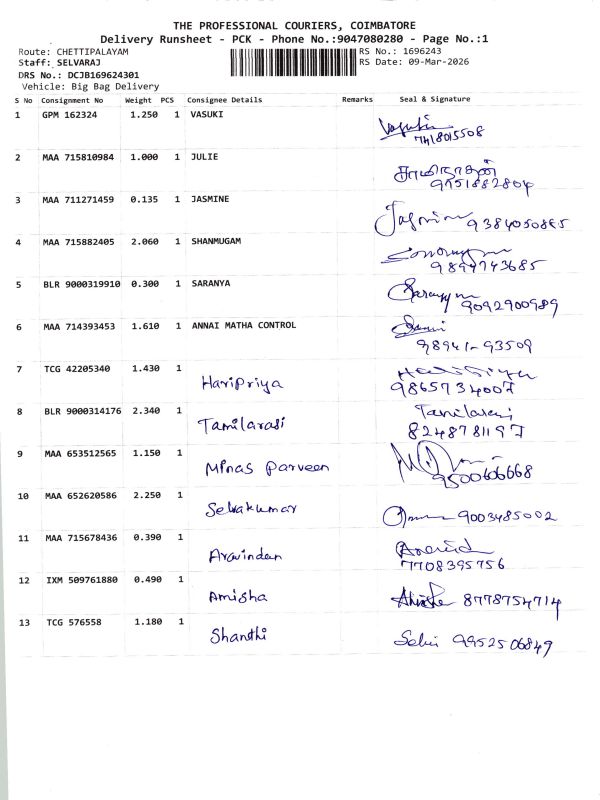 THE PROFESSIONAL COURIERS, COIMBATORE
Delivery Runsheet - PCK - Phone No.:9047080280 - Page No.:1
Route: CHETTIPALAYAM RS No.: 1696243
Staff: SELVARAJ RS Date: 09-Mar-2026
DRS No.: DCJB169624301
Vehicle: Big Bag Delivery
S No Consignment No Weight PCS Consignee Details Remarks Seal & Signature
1 GPM 162324 1.250 1 VASUKI
7418015508
2 MAA 715810984 1.000 1 JULIE
சாமிநாதன்
9751882804
3 MAA 711271459 0.135 1 JASMINE
Jasmine
4 MAA 715882405 2.060 1 SHANMUGAM
9894743685
5 BLR 9000319910 0.300 1 SARANYA
Saranya 9092900989
6 MAA 714393453 1.610 1 ANNAI MATHA CONTROL
98941-93509
7 TCG 42205340 1.430 1
HariPriya 9865734007
8 BLR 9000314176 2.340 1 Tamilarasi
Tamilarasi 8248781197
9 MAA 653512565 1.150 1
Minas Parveen 9500606668
10 MAA 652620586 2.250 1
Selvakumar 9003485002
11 MAA 715678436 0.390 1
Aravindan Aravind
7708395756
12 IXM 509761880 0.490 1
Amisha 8778754714
13 TCG 576558 1.180 1
Shanthi 9952506849